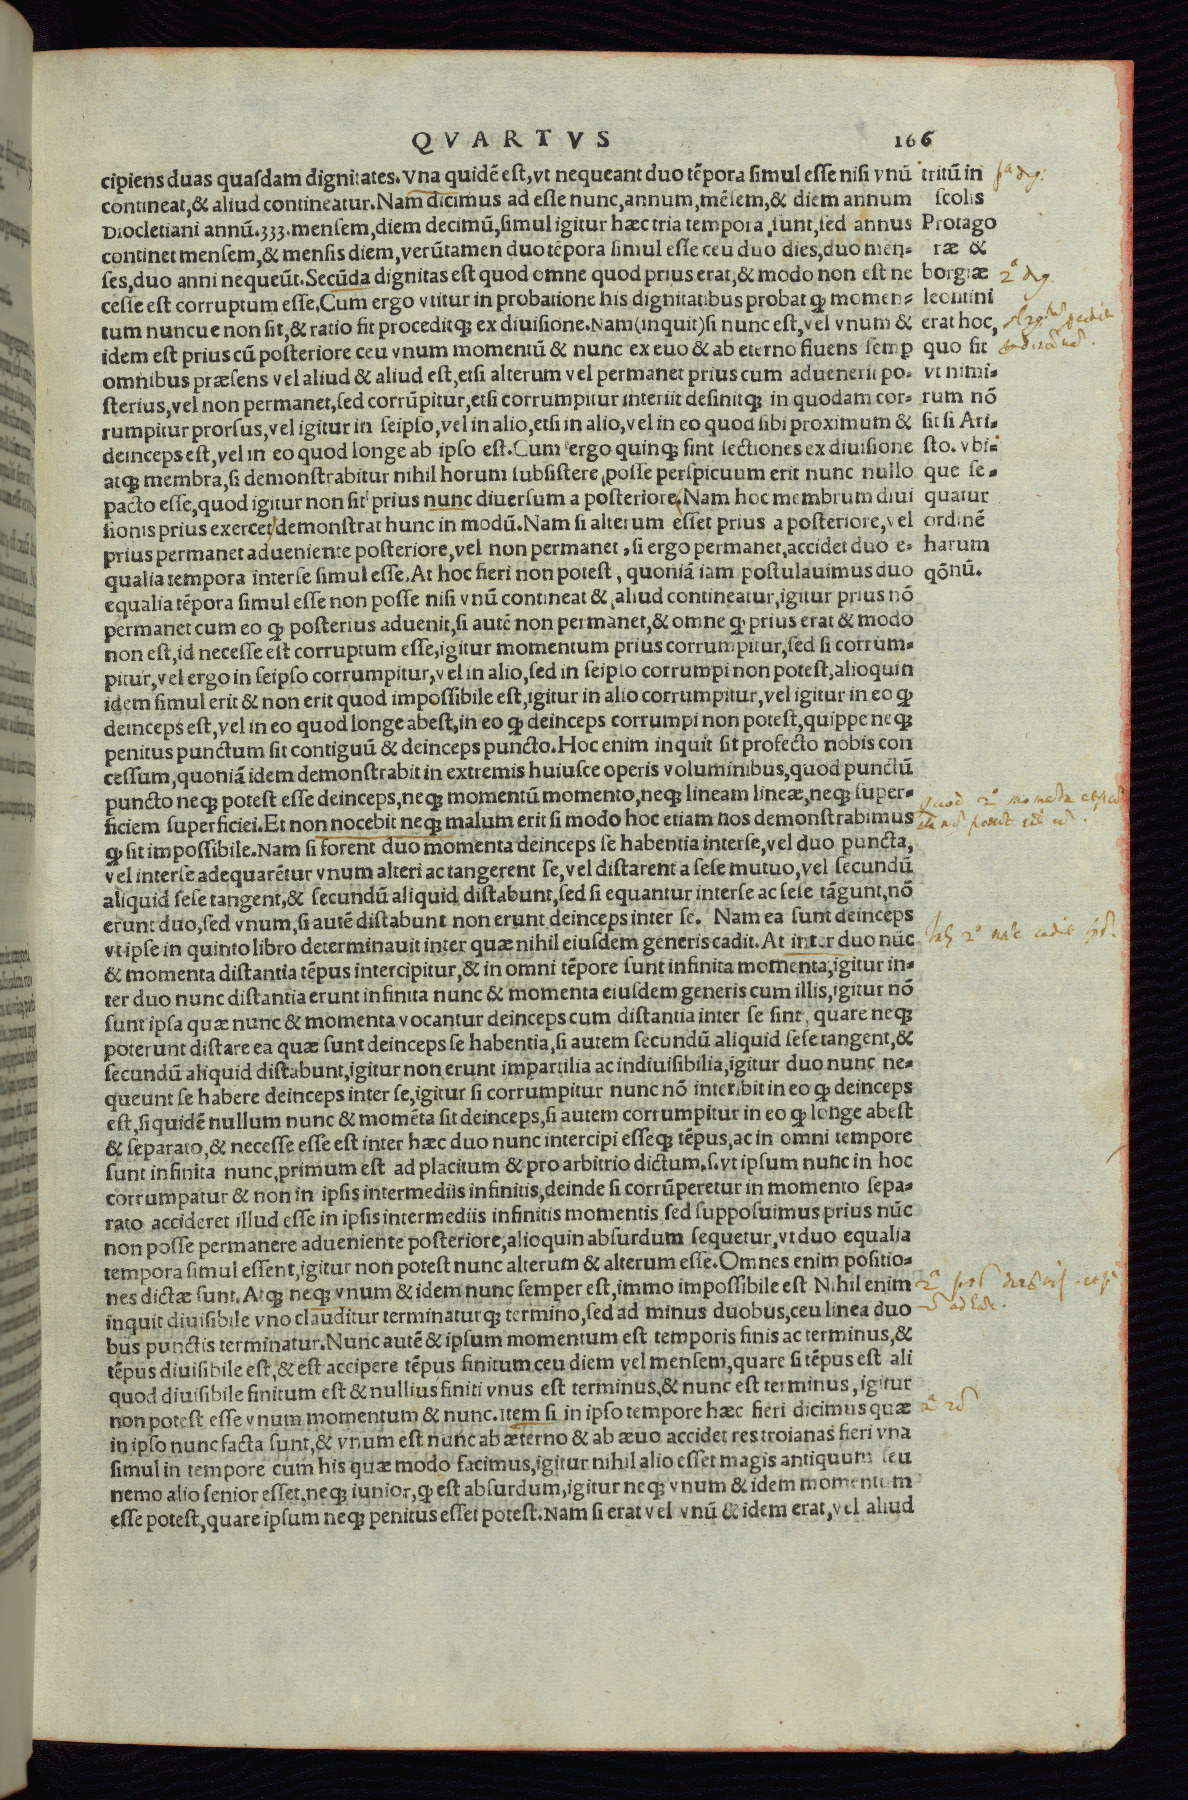 QVARTVS 166
cipiens duas quasdam dignitates. Vna quidē est, vt nequeant duo tēpora simul esse nisi vnū
contineat, & aliud contineatur. Nam dicimus ad esse nunc, annum, mēsem, & diem annum
Diocletiani annū. 333. mensem, diem decimū, simul igitur hæc tria tempora sunt, sed annus
continet mensem, & mensis diem, verūtamen duo tēpora simul esse ceu duo dies, duo men-
ses, duo anni nequeūt. Secūda dignitas est quod omne quod prius erat, & modo non est ne
cesse est corruptum esse. Cum ergo vtitur in probatione his dignitatibus probat ꝙ momen-
tum nuncue non sit, & ratio fit proceditqꝫ ex diuisione. Nam (inquit) si nunc est, vel vnum &
idem est prius cū posteriore ceu vnum momentū & nunc ex euo & ab eterno fluens semꝑ
omnibus præsens vel aliud & aliud est, etsi alterum vel permanet prius cum aduenerit po-
sterius, vel non permanet, sed corrūpitur, etsi corrumpitur interiit desinitqꝫ in quodam cor-
rumpitur prorsus, vel igitur in seipso, vel in alio, etsi in alio, vel in eo quod sibi proximum &
deinceps est, vel in eo quod longe ab ipso est. Cum ergo quinqꝫ sint sectiones ex diuisione
atqꝫ membra, si demonstrabitur nihil horum subsistere, posse perspicuum erit nunc nullo
pacto esse, quod igitur non sit prius nunc diuersum a posteriore. Nam hoc membrum diui
sionis prius exercet demonstrat hunc in modū. Nam si alterum esset prius a posteriore, vel
prius permanet adueniente posteriore, vel non permanet, si ergo permanet, accidet duo e-
qualia tempora interse simul esse. At hoc fieri non potest, quoniā iam postulauimus duo
equalia tēpora simul esse non posse nisi vnū contineat & aliud contineatur, igitur prius nō
permanet cum eo ꝙ posterius aduenit, si autē non permanet, & omne ꝙ prius erat & modo
non est, id necesse est corruptum esse, igitur momentum prius corrumpitur, sed si corrum-
pitur, vel ergo in seipso corrumpitur, vel in alio, sed in seipso corrumpi non potest, alioquin
idem simul erit & non erit quod impossibile est, igitur in alio corrumpitur, vel igitur in eo ꝙ
deinceps est, vel in eo quod longe abest, in eo ꝙ deinceps corrumpi non potest, quippe neqꝫ
penitus punctum sit contiguū & deinceps puncto. Hoc enim inquit sit profecto nobis con
cessum, quoniā idem demonstrabit in extremis huiusce operis voluminibus, quod punctū
puncto neqꝫ potest esse deinceps, neqꝫ momentū momento, neqꝫ lineam lineæ, neqꝫ super-
ficiem superficiei. Et non nocebit neqꝫ malum erit si modo hoc etiam nos demonstrabimus
ꝙ sit impossibile. Nam si forent duo momenta deinceps se habentia interse, vel duo puncta,
vel interse adequarētur vnum alteri ac tangerent se, vel distarent a sese mutuo, vel secundū
aliquid sese tangent, & secundū aliquid distabunt, sed si equantur interse ac sese tāgunt, nō
erunt duo, sed vnum, si autē distabunt non erunt deinceps inter se. Nam ea sunt deinceps
vt ipse in quinto libro determinauit inter quæ nihil eiusdem generis cadit. At inter duo nūc
& momenta distantia tēpus intercipitur, & in omni tēpore sunt infinita momenta, igitur in-
ter duo nunc distantia erunt infinita nunc & momenta eiusdem generis cum illis, igitur nō
sunt ipsa quæ nunc & momenta vocantur deinceps cum distantia inter se sint, quare neqꝫ
poterunt distare ea quæ sunt deinceps se habentia, si autem secundū aliquid sese tangent, &
secundū aliquid distabunt, igitur non erunt impartilia ac indiuisibilia, igitur duo nunc ne-
queunt se habere deinceps inter se, igitur si corrumpitur nunc nō interibit in eo ꝙ deinceps
est, si quidē nullum nunc & momēta sit deinceps, si autem corrumpitur in eo ꝙ longe abest
& separato, & necesse esse est inter hæc duo nunc intercipi esseqꝫ tēpus, ac in omni tempore
sunt infinita nunc, primum est ad placitum & pro arbitrio dictum. s. vt ipsum nunc in hoc
corrumpatur & non in ipsis intermediis infinitis, deinde si corrūperetur in momento sepa-
rato accideret illud esse in ipsis intermediis infinitis momentis sed supposuimus prius nūc
non posse permanere adueniente posteriore, alioquin absurdum sequetur, vt duo equalia
tempora simul essent, igitur non potest nunc alterum & alterum esse. Omnes enim positio-
nes dictæ sunt. Atqꝫ neqꝫ vnum & idem nunc semper est, immo impossibile est Nihil enim
inquit diuisibile vno clauditur terminaturqꝫ termino, sed ad minus duobus, ceu linea duo
bus punctis terminatur. Nunc autē & ipsum momentum est temporis finis ac terminus, &
tēpus diuisibile est, & est accipere tēpus finitum ceu diem vel mensem, quare si tēpus est ali
quod diuisibile finitum est & nullius finiti vnus est terminus, & nunc est terminus, igitur
non potest esse vnum momentum & nunc. Item si in ipso tempore hæc fieri dicimus quæ
in ipso nunc facta sunt, & vnum est nunc ab æterno & ab æuo accidet res troianas fieri vna
simul in tempore cum his quæ modo facimus, igitur nihil alio esset magis antiquum seu
nemo alio senior esset, neqꝫ iunior, ꝙ est absurdum, igitur neqꝫ vnum & idem momentum
esse potest, quare ipsum neqꝫ penitus esset potest. Nam si erat vel vnū & idem erat, vel aliud
tritū in
scolis
Protago
ræ &
borgiæ
leontini
erat hoc,
quo fit
vt nimi-
rum nō
sit si Ari-
sto. vbi-
que se-
quatur
ordinē
harum
qōnū.